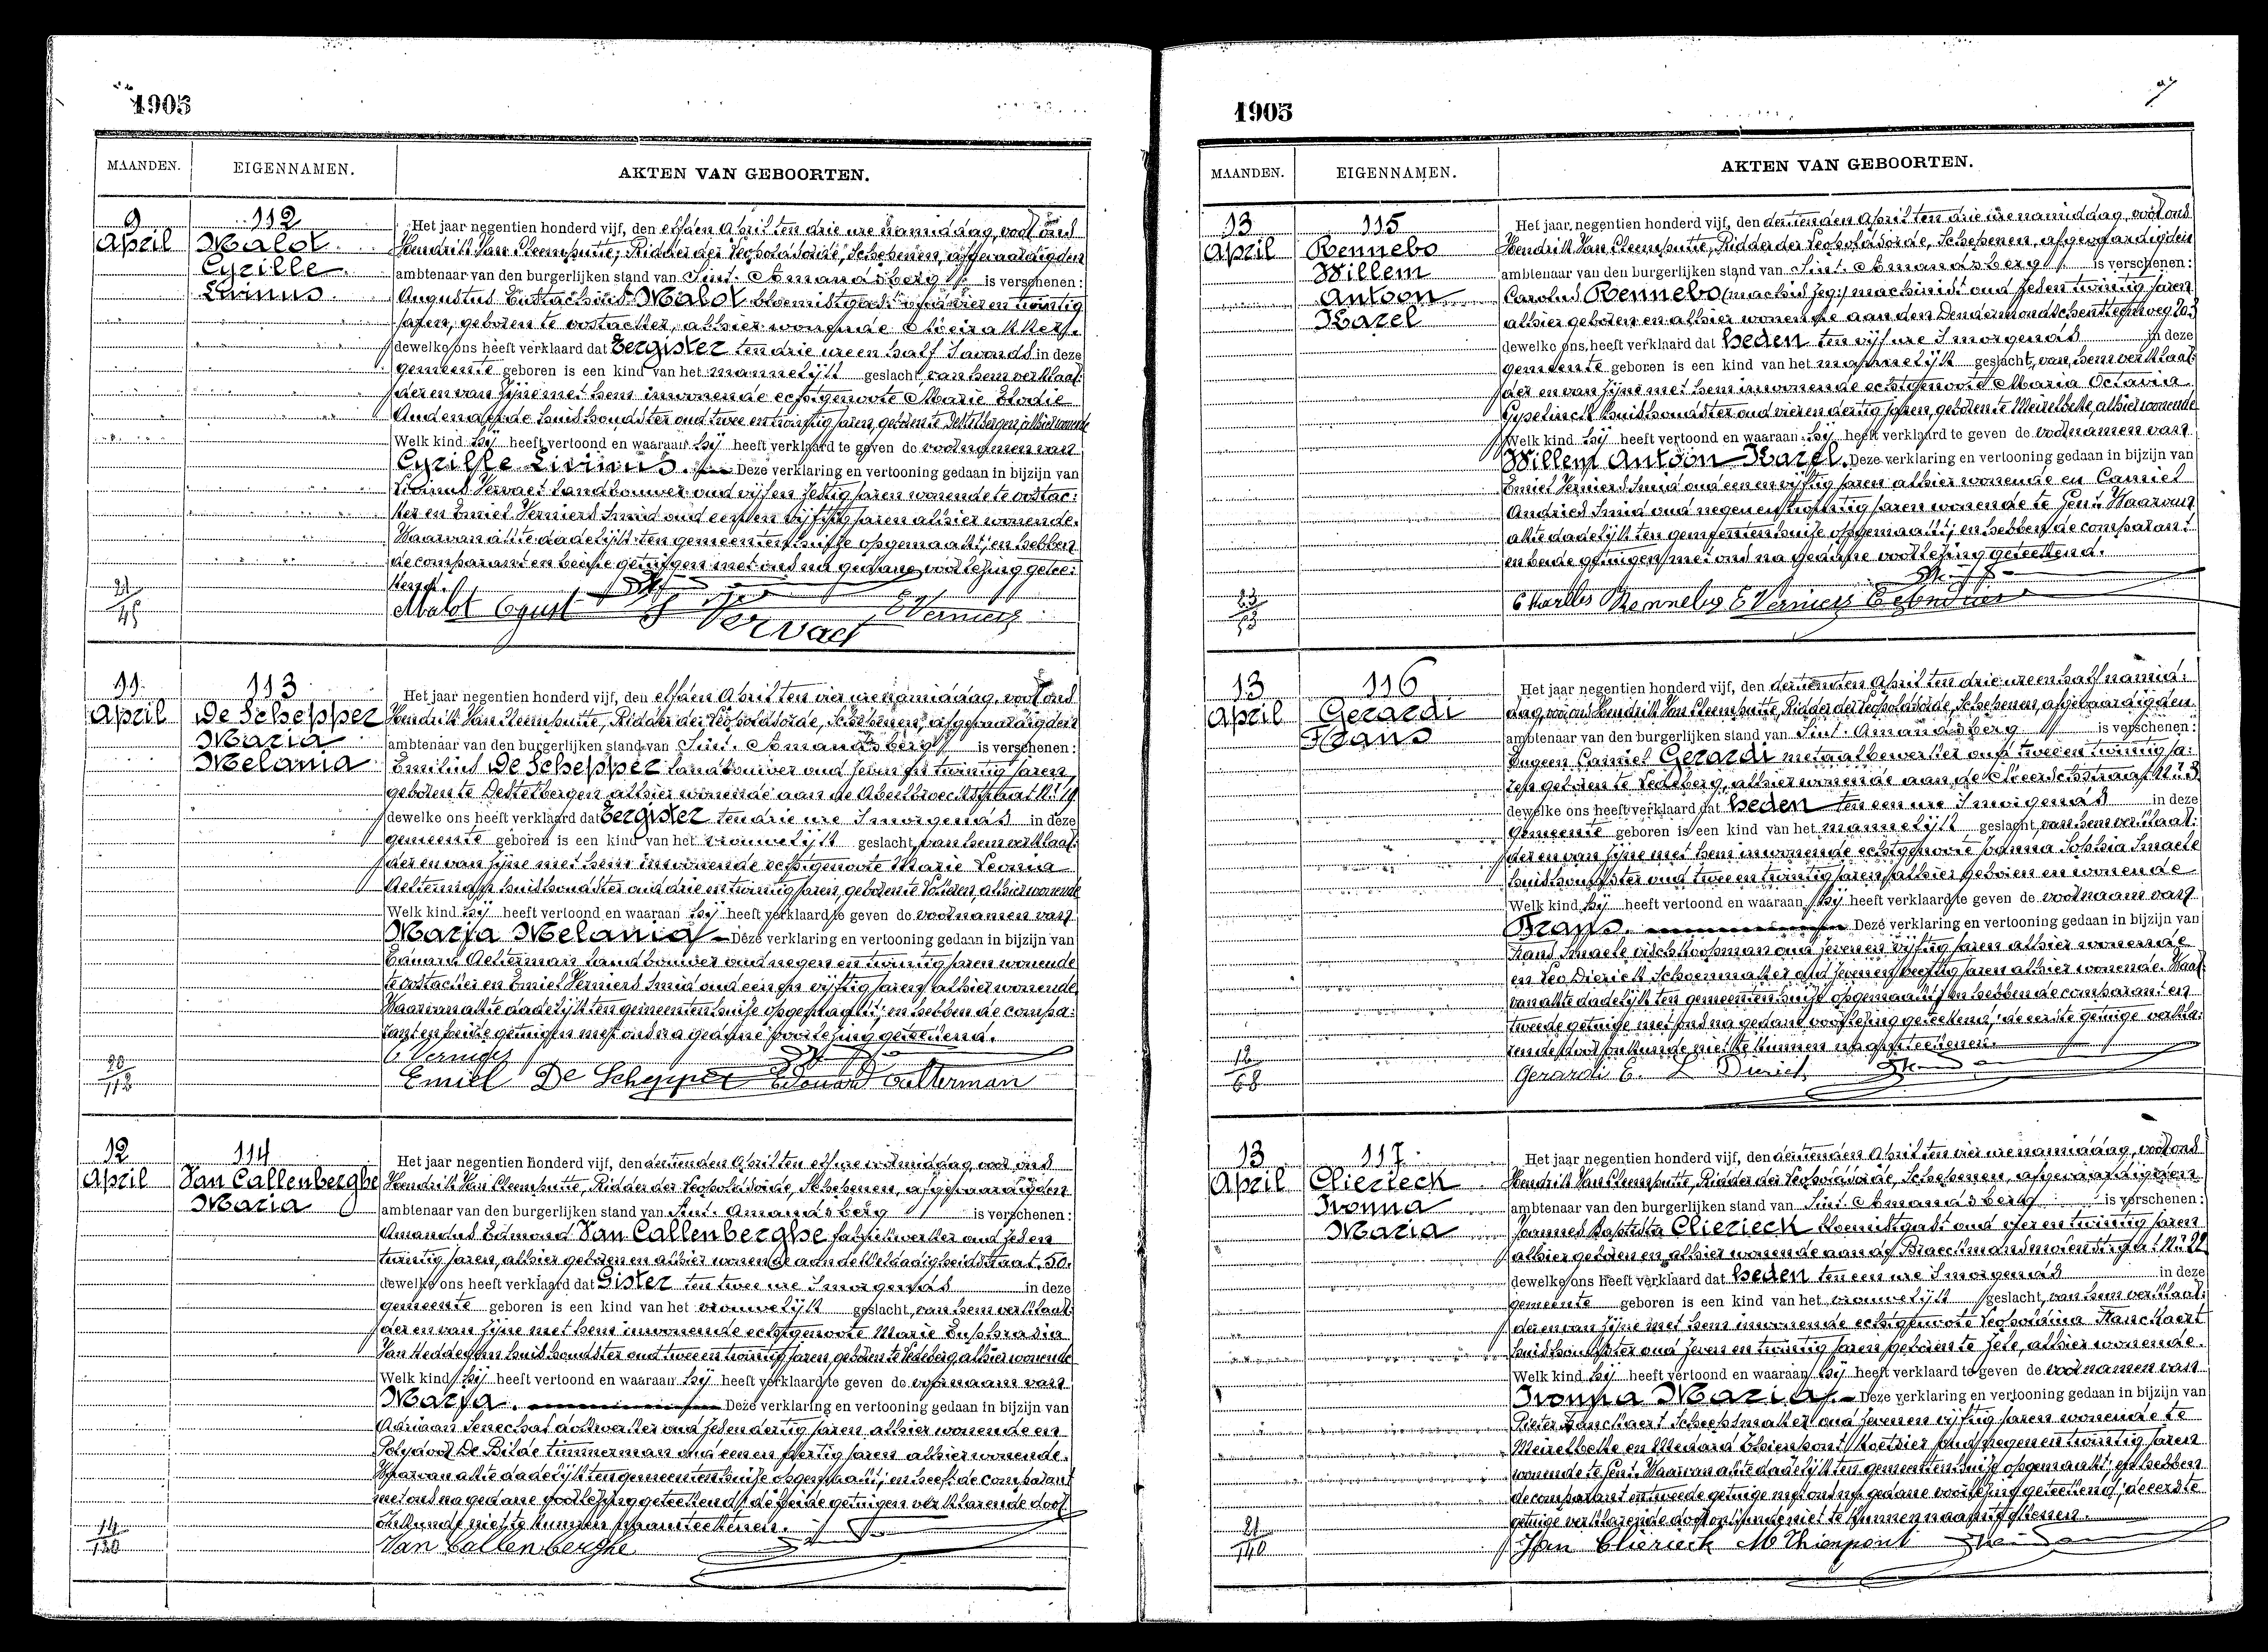 1905
MAANDEN. EIGENNAMEN. AKTEN VAN GEBOORTEN.
9 April
112
Malot
Cyrille
Livinus
Het jaar negentien honderd vijf, den elfden April ten drie ure namiddag, voor ons
Hendrik Van Cleemputte, Ridder der Leopoldsorde, Schepenen, afgevaardigden
ambtenaar van den burgerlijken stand van Sint-Amandsberg is verschenen:
Augustus Eustachius Malot bloemistgast oud vier en twintig
jaren, geboren te Oostacker, alhier wonende
dewelke ons heeft verklaard dat Eergister ten drie ure en half 's avonds in deze
gemeente geboren is een kind van het mannelijk geslacht, van hem verklaar-
der en van zijne met hem inwonende echtgenoote Marie Elodie
Audenaerde huishoudster oud twee en twintig jaren, geboren te Destelbergen, alhier wonende
Welk kind hij heeft vertoond en waaraan hij heeft verklaard te geven de voornamen van
Cyrille Livinus. Deze verklaring en vertooning gedaan in bijzijn van
Livinus Vervaet landbouwer oud vijf en zestig jaren wonende te Oostac-
ker en Emiel Verniers smid oud een en vijftig jaren alhier wonende.
Waarvan akte dadelijk ten gemeentenhuize opgemaakt; en hebben
de comparant en beide getuigen met ons na gedane voorlezing getee-
kend.
Malot Vervaet E Verniers
21/45
11 April
113
De Schepper
Maria
Melania
Het jaar negentien honderd vijf, den elfden April ten vier ure namiddag, voor ons
Hendrik Van Cleemputte, Ridder der Leopoldsorde, Schepenen, afgevaardigden
ambtenaar van den burgerlijken stand van Sint-Amandsberg is verschenen:
Emilius De Schepper landbouwer oud zeven en twintig jaren
geboren te Destelbergen alhier wonende aan de
dewelke ons heeft verklaard dat Eergister ten drie ure 's morgends in deze
gemeente geboren is een kind van het vrouwelijk geslacht, van hem verklaar-
der en van zijne met hem inwonende echtgenoote Marie Leonia
Aelterman huishoudster oud drie en twintig jaren, geboren te alhier wonende
Welk kind hij heeft vertoond en waaraan hij heeft verklaard te geven de voornamen van
Maria Melania. Deze verklaring en vertooning gedaan in bijzijn van
Eduard Aelterman landbouwer oud negen en twintig jaren wonende
te Oostacker en Emiel Verniers smid oud een en vijftig jaren alhier wonende
Waarvan akte dadelijk ten gemeentenhuize opgemaakt; en hebben de compa-
rant en beide getuigen met ons na gedane voorlezing geteekend.
E Verniers
Emiel De Schepper Edouard Aelterman
20/113
12 April
114
Van Callenberghe
Maria
Het jaar negentien honderd vijf, den dertienden April ten elf ure voormiddag, voor ons
Hendrik Van Cleemputte, Ridder der Leopoldsorde, Schepenen, afgevaardigden
ambtenaar van den burgerlijken stand van Sint-Amandsberg is verschenen:
Amandus Edmond Van Callenberghe fabriekwerker oud zes en
twintig jaren, alhier geboren en alhier wonende aan de Weldadigheidstraat 50.
dewelke ons heeft verklaard dat Gister ten twee ure 's morgends in deze
gemeente geboren is een kind van het vrouwelijk geslacht, van hem verklaar-
der en van zijne met hem inwonende echtgenoote Marie Euphrasia
Van Heddegem huishoudster oud twee en twintig jaren, geboren te Ledeberg, alhier wonende
Welk kind hij heeft vertoond en waaraan hij heeft verklaard te geven de voornaam van
Maria. Deze verklaring en vertooning gedaan in bijzijn van
Adriaan Senechal dokwerker oud zes en dertig jaren alhier wonende en
Polydoor De Bilde timmerman oud een en dertig jaren alhier wonende.
Waarvan akte dadelijk ten gemeentenhuize opgemaakt; en heeft de comparant
met ons na gedane voorlezing geteekend; de beide getuigen verklarende door
onkunde niet te kunnen naamteekenen.
Van Callenberghe
14/130
1905
MAANDEN. EIGENNAMEN. AKTEN VAN GEBOORTEN.
13 April
115
Rennebo
Willem
Antoon
Karel
Het jaar negentien honderd vijf, den dertienden April ten drie ure namiddag, voor ons
Hendrik Van Cleemputte, Ridder der Leopoldsorde, Schepenen, afgevaardigden
ambtenaar van den burgerlijken stand van Sint-Amandsberg is verschenen:
Carolus Rennebo machinist oud zes en twintig jaren
alhier geboren en alhier wonende aan den Dendermondschensteenweg
dewelke ons heeft verklaard dat heden ten vijf ure 's morgends in deze
gemeente geboren is een kind van het mannelijk geslacht, van hem verklaar-
der en van zijne met hem inwonende echtgenoote Maria Octavia
Gyselinck huishoudster oud vier en dertig jaren, geboren te Meirelbeke, alhier wonende
Welk kind hij heeft vertoond en waaraan hij heeft verklaard te geven de voornamen van
Willem Antoon Karel. Deze verklaring en vertooning gedaan in bijzijn van
Emiel Verniers smid oud een en vijftig jaren alhier wonende en Camiel
Andries smid oud negen en twintig jaren wonende te Gent. Waarvan
akte dadelijk ten gemeentenhuize opgemaakt; en hebben de comparant
en beide getuigen met ons na gedane voorlezing geteekend.
Charles Rennebo E Verniers
23/53
13 April
116
Gerardi
Frans
Het jaar negentien honderd vijf, den dertienden April ten drie ure en half namid-
dag, voor ons Hendrik Van Cleemputte, Ridder der Leopoldsorde, Schepenen, afgevaardigden
ambtenaar van den burgerlijken stand van Sint-Amandsberg is verschenen:
Eugeen Camiel Gerardi metaalbewerker oud twee en twintig ja-
ren geboren te Ledeberg, alhier wonende aan de
dewelke ons heeft verklaard dat heden ten een ure 's morgends in deze
gemeente geboren is een kind van het mannelijk geslacht, van hem verklaar-
der en van zijne met hem inwonende echtgenoote Joanna Sophia Smaele
huishoudster oud twee en twintig jaren, alhier geboren en wonende
Welk kind hij heeft vertoond en waaraan hij heeft verklaard te geven de voornaam van
Frans. Deze verklaring en vertooning gedaan in bijzijn van
Frans Smaele vischkoopman oud zeven en vijftig jaren alhier wonende
en Leo Dierick schoenmaker oud zeven en veertig jaren alhier wonende. Waar-
van akte dadelijk ten gemeentenhuize opgemaakt; en hebben de comparant en
tweede getuige met ons na gedane voorlezing geteekend; de eerste getuige verkla-
rende door onkunde niet te kunnen naamteekenen.
Gerardi E. L Dierick
12/68
13 April
117
Clierieck
Ivonna
Maria
Het jaar negentien honderd vijf, den dertienden April ten vier ure namiddag, voor ons
Hendrik Van Cleemputte, Ridder der Leopoldsorde, Schepenen, afgevaardigden
ambtenaar van den burgerlijken stand van Sint-Amandsberg is verschenen:
Joannes Baptista Clierieck bloemistgast oud vier en twintig jaren
alhier geboren en alhier wonende aan de
dewelke ons heeft verklaard dat heden ten een ure 's morgends in deze
gemeente geboren is een kind van het vrouwelijk geslacht, van hem verklaar-
der en van zijne met hem inwonende echtgenoote Leopoldina Franckaert
huishoudster oud zeven en twintig jaren geboren te Zele, alhier wonende.
Welk kind hij heeft vertoond en waaraan hij heeft verklaard te geven de voornamen van
Ivonna Maria. Deze verklaring en vertooning gedaan in bijzijn van
Pieter Franckaert scheepsmaker oud zeven en vijftig jaren wonende te
Meirelbeke en Medard Thienpont koetsier oud negen en twintig jaren
wonende te Gent. Waarvan akte dadelijk ten gemeentenhuize opgemaakt; en hebben
de comparant en tweede getuige met ons na gedane voorlezing geteekend; de eerste
getuige verklarende door onkunde niet te kunnen naamteekenen.
Jan Clierieck M Thienpont
21/140